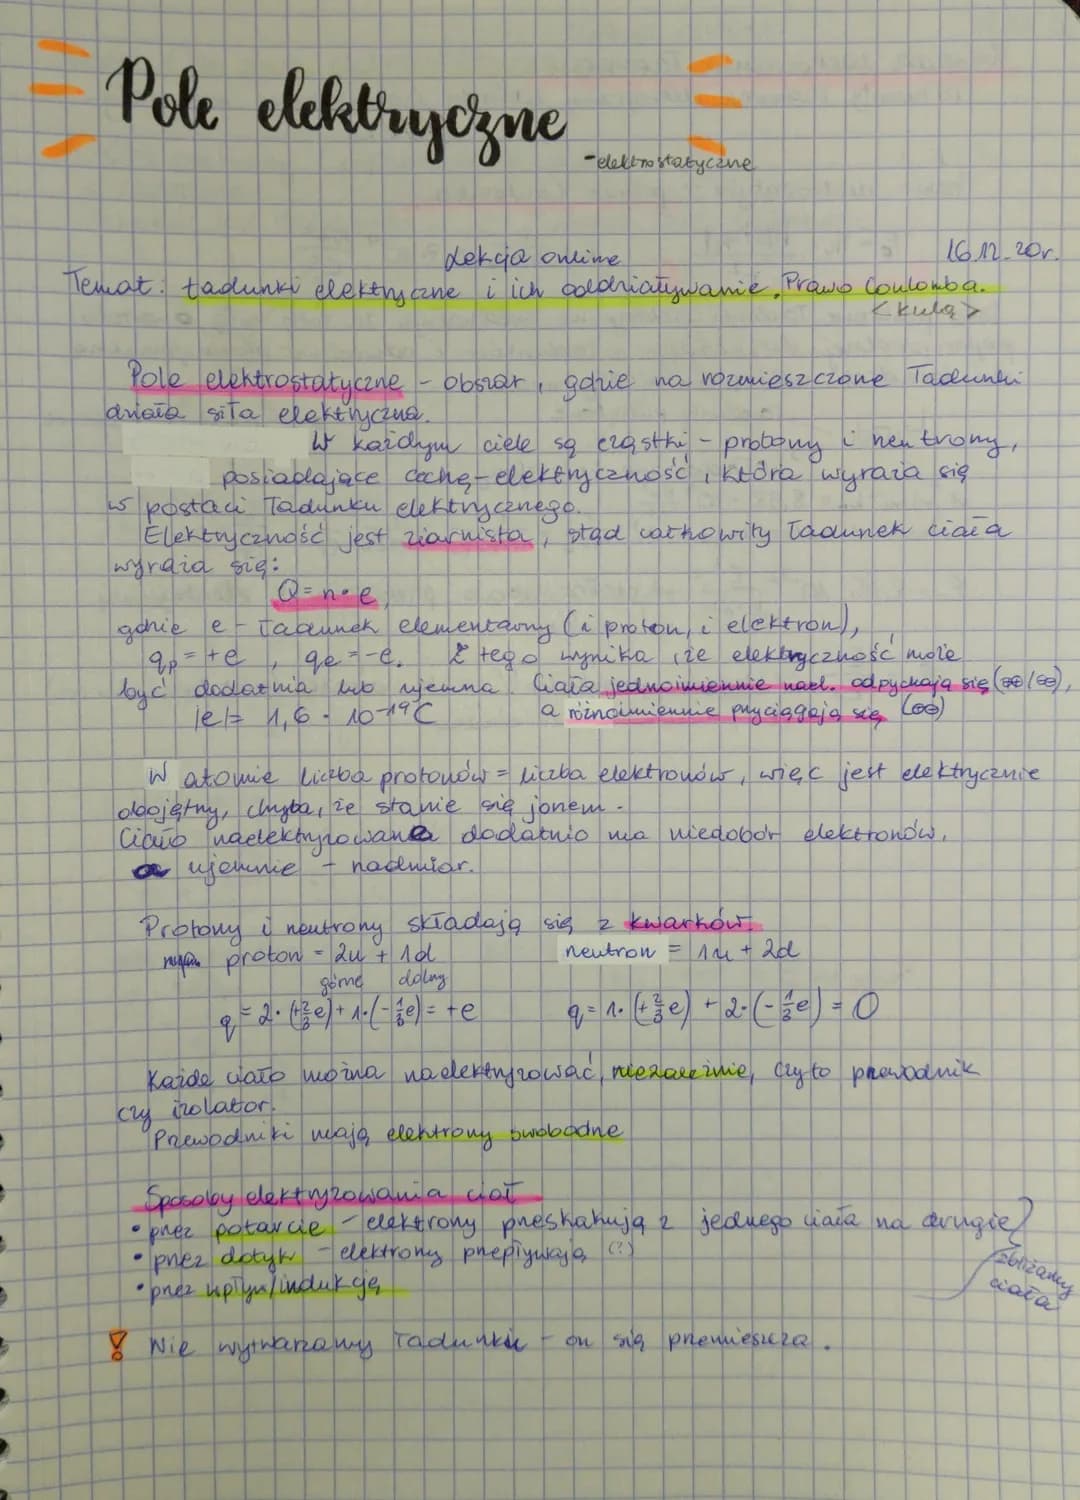 Pole elektryczne
- elektrostatyczne
Lekcja online 16.12.20r.
Temat: Ładunki elektryczne i ich oddziaływanie. Prawo Coulomba.
<kulą>
Pole elektrostatyczne - obszar, gdzie na rozmieszczone ładunki
działa siła elektryczna.
W każdym ciele są cząstki - protony i neutrony,
posiadające cechę - elektryczność, która wyraża się
w postaci ładunku elektrycznego.
Elektryczność jest ziarnista, stąd całkowity ładunek ciała
wyraża się:
Q = n · e,
gdzie e - ładunek elementarny (i proton, i elektron),
qp = +e, qe = -e. Z tego wynika, że elektryczność może
być dodatnia lub ujemna. Ciała jednoimiennie nael. odpychają się (⊕⊕/⊖⊖),
|e| = 1,6 · 10⁻¹⁹C a różnoimiennie przyciągają się (⊕⊖)
W atomie liczba protonów = liczba elektronów, więc jest elektrycznie
obojętny, chyba, że stanie się jonem.
Ciało naelektryzowane dodatnio ma niedobór elektronów,
a ujemnie - nadmiar.
Protony i neutrony składają się z kwarków.
proton = 2u + 1d neutron = 1u + 2d
górne dolny
q = 2·(+⅔e) + 1·(-⅓e) = +e q = 1·(+⅔e) + 2·(-⅓e) = 0
Każde ciało można naelektryzować, niezależnie, czy to przewodnik
czy izolator.
Przewodniki mają elektrony swobodne
Sposoby elektryzowania ciał
• przez potarcie - elektrony przeskakują z jednego ciała na drugie
• przez dotyk - elektrony przepływają (?)
• przez wpływ/indukcję
zbliżamy
ciała
! Nie wytwarzamy ładunku - on się przemieszcza.